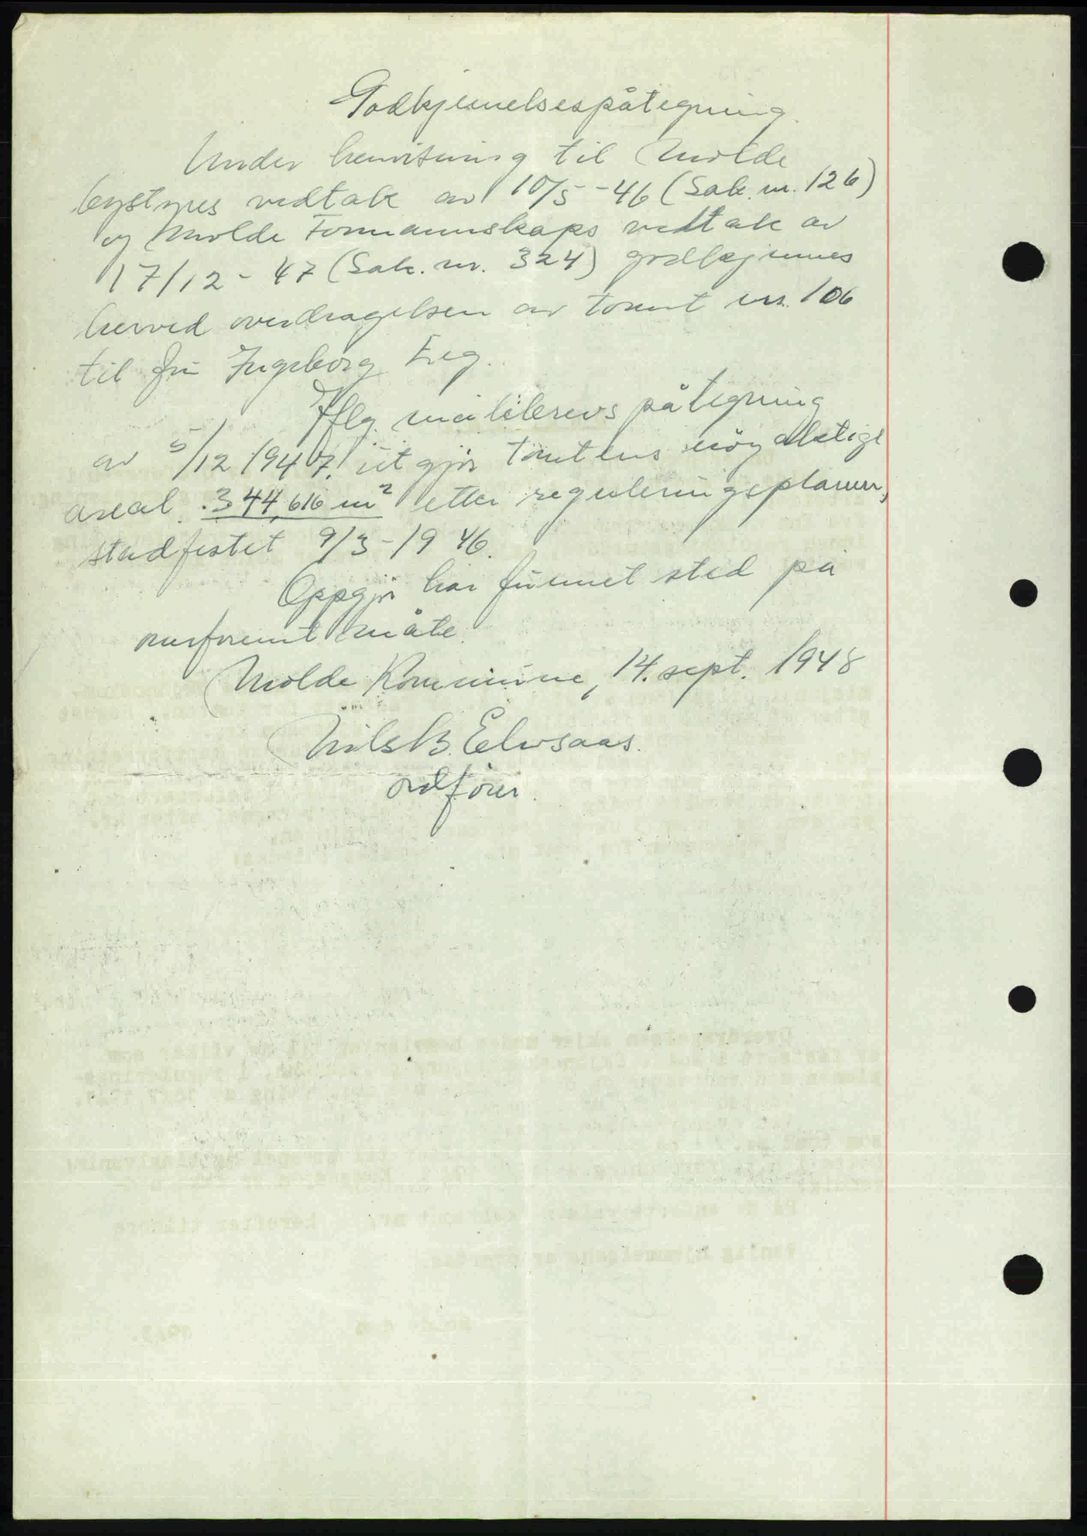 Godkjennelsespåtegning.
Under henvisning til Molde
bystyres vedtak av 10/5-46 (Sak. nr. 126)
og Molde Formannskaps vedtak av
17/12-47 (Sak. nr. 324) godkjennes
herved overdragelsen av tomt nr. 106
til fru Ingeborg Eeg.
Iflg. målebrevs påtegning
av 5/12 1947. utgjør tomtens nöyaktige
areal. 344,616 m² etter reguleringsplanen,
stadfestet 9/3-1946.
Oppgjör har funnet sted på
omforent måte.
Molde Kommune, 14. sept. 1948
Nils B. Elvsaas.
ordförer.